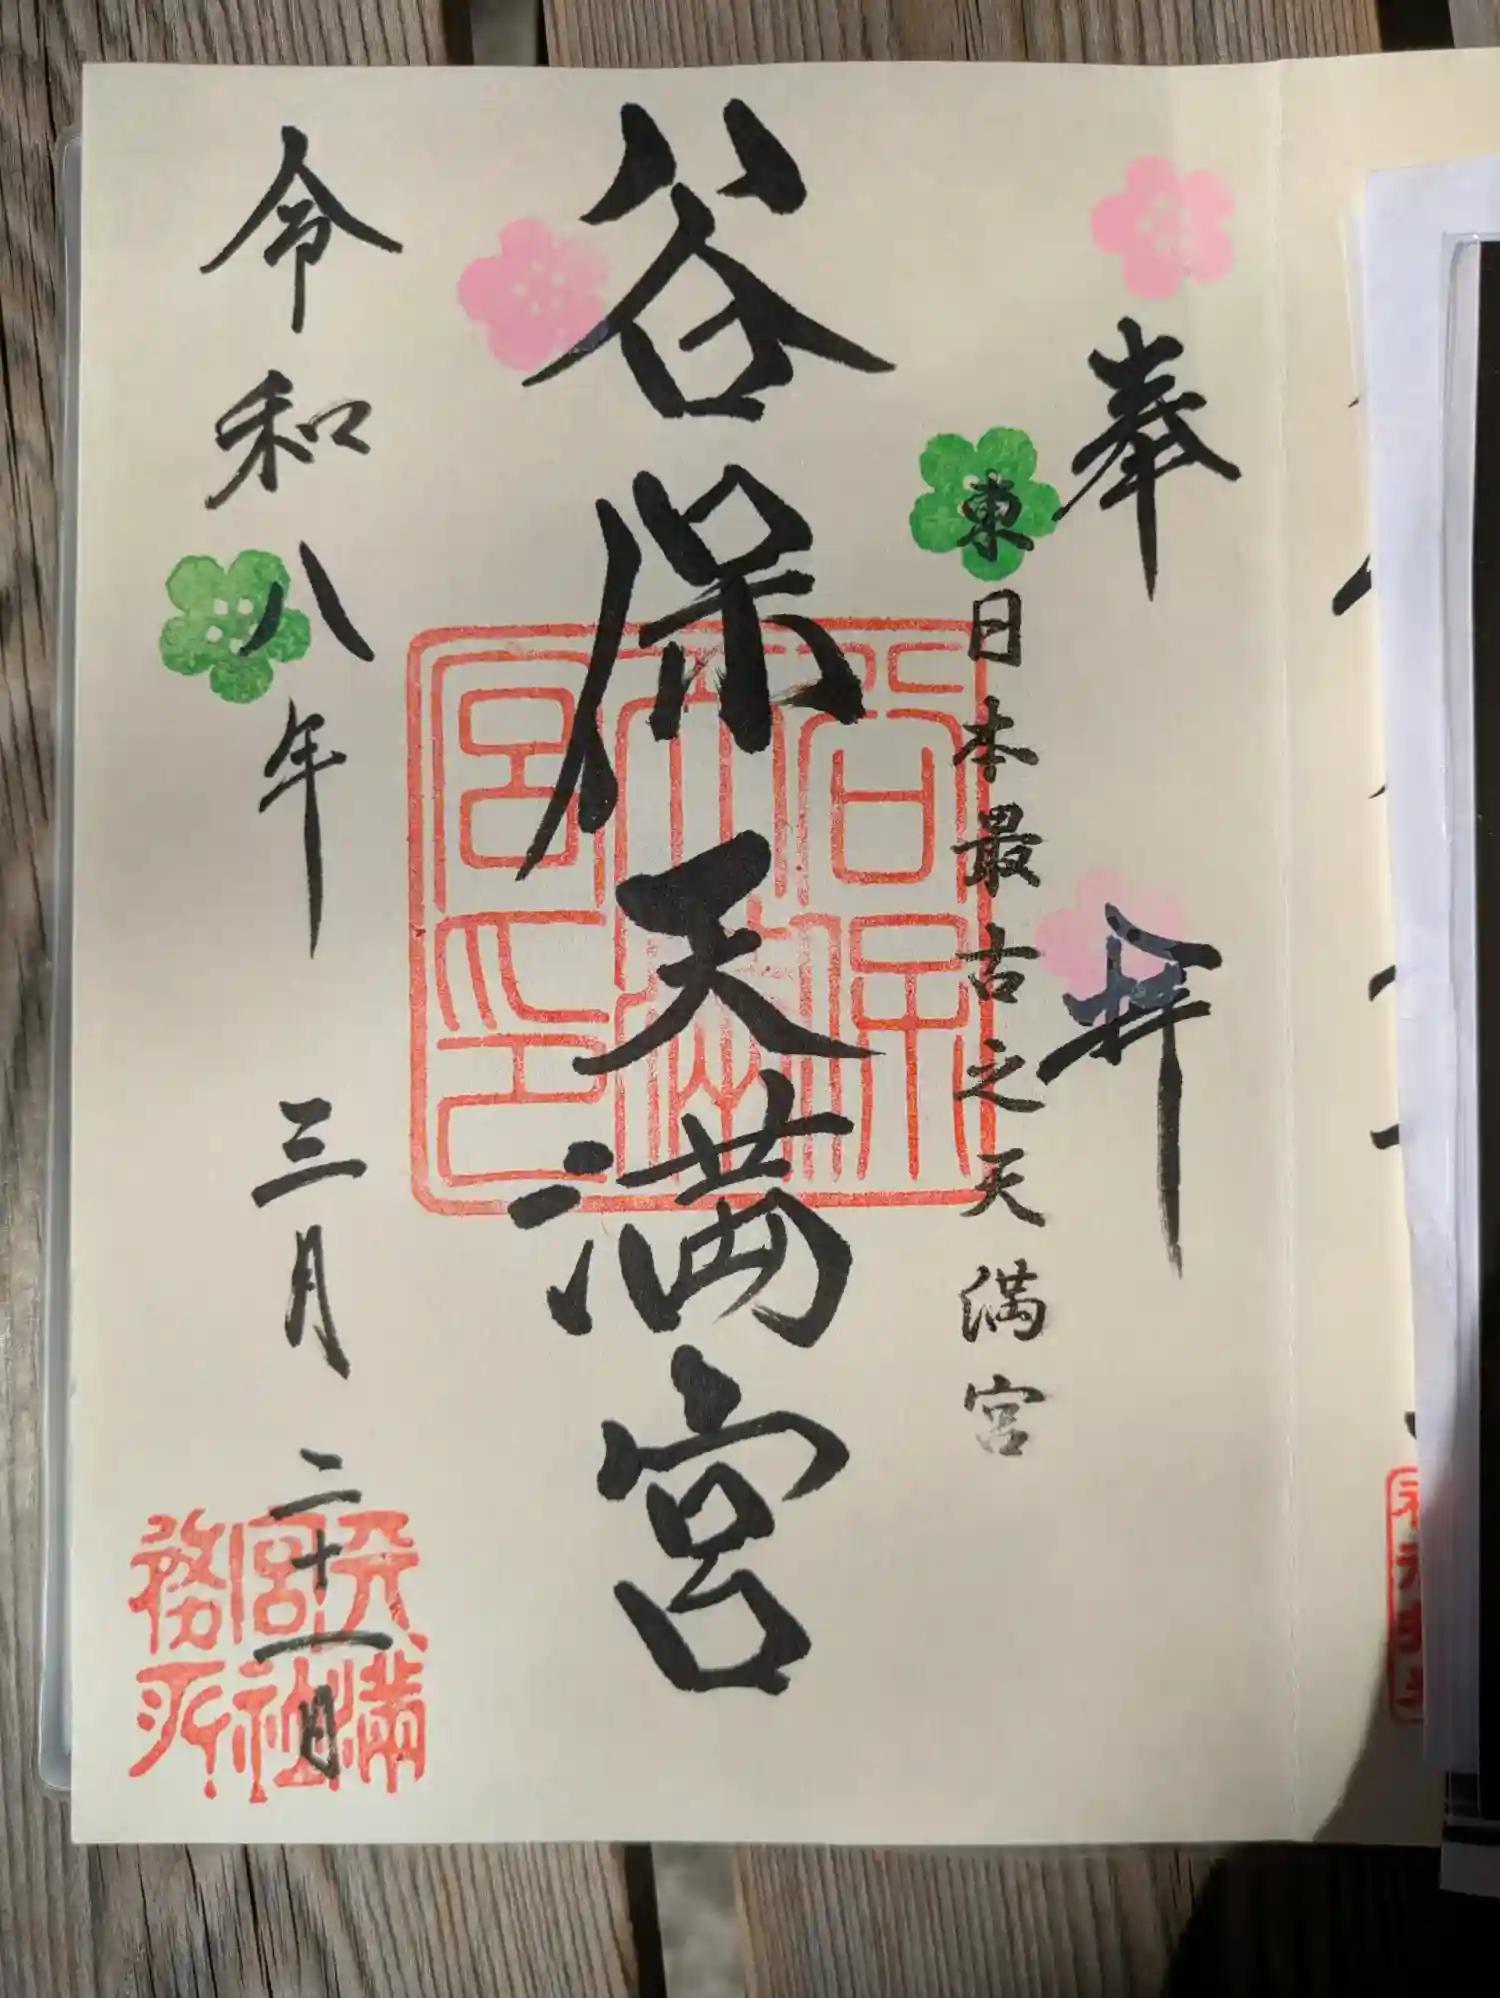 奉拝
東日本最古之天満宮
谷保天満宮
谷保
天満
宮印
令和八年 三月 二十一日
天満
宮社
務所